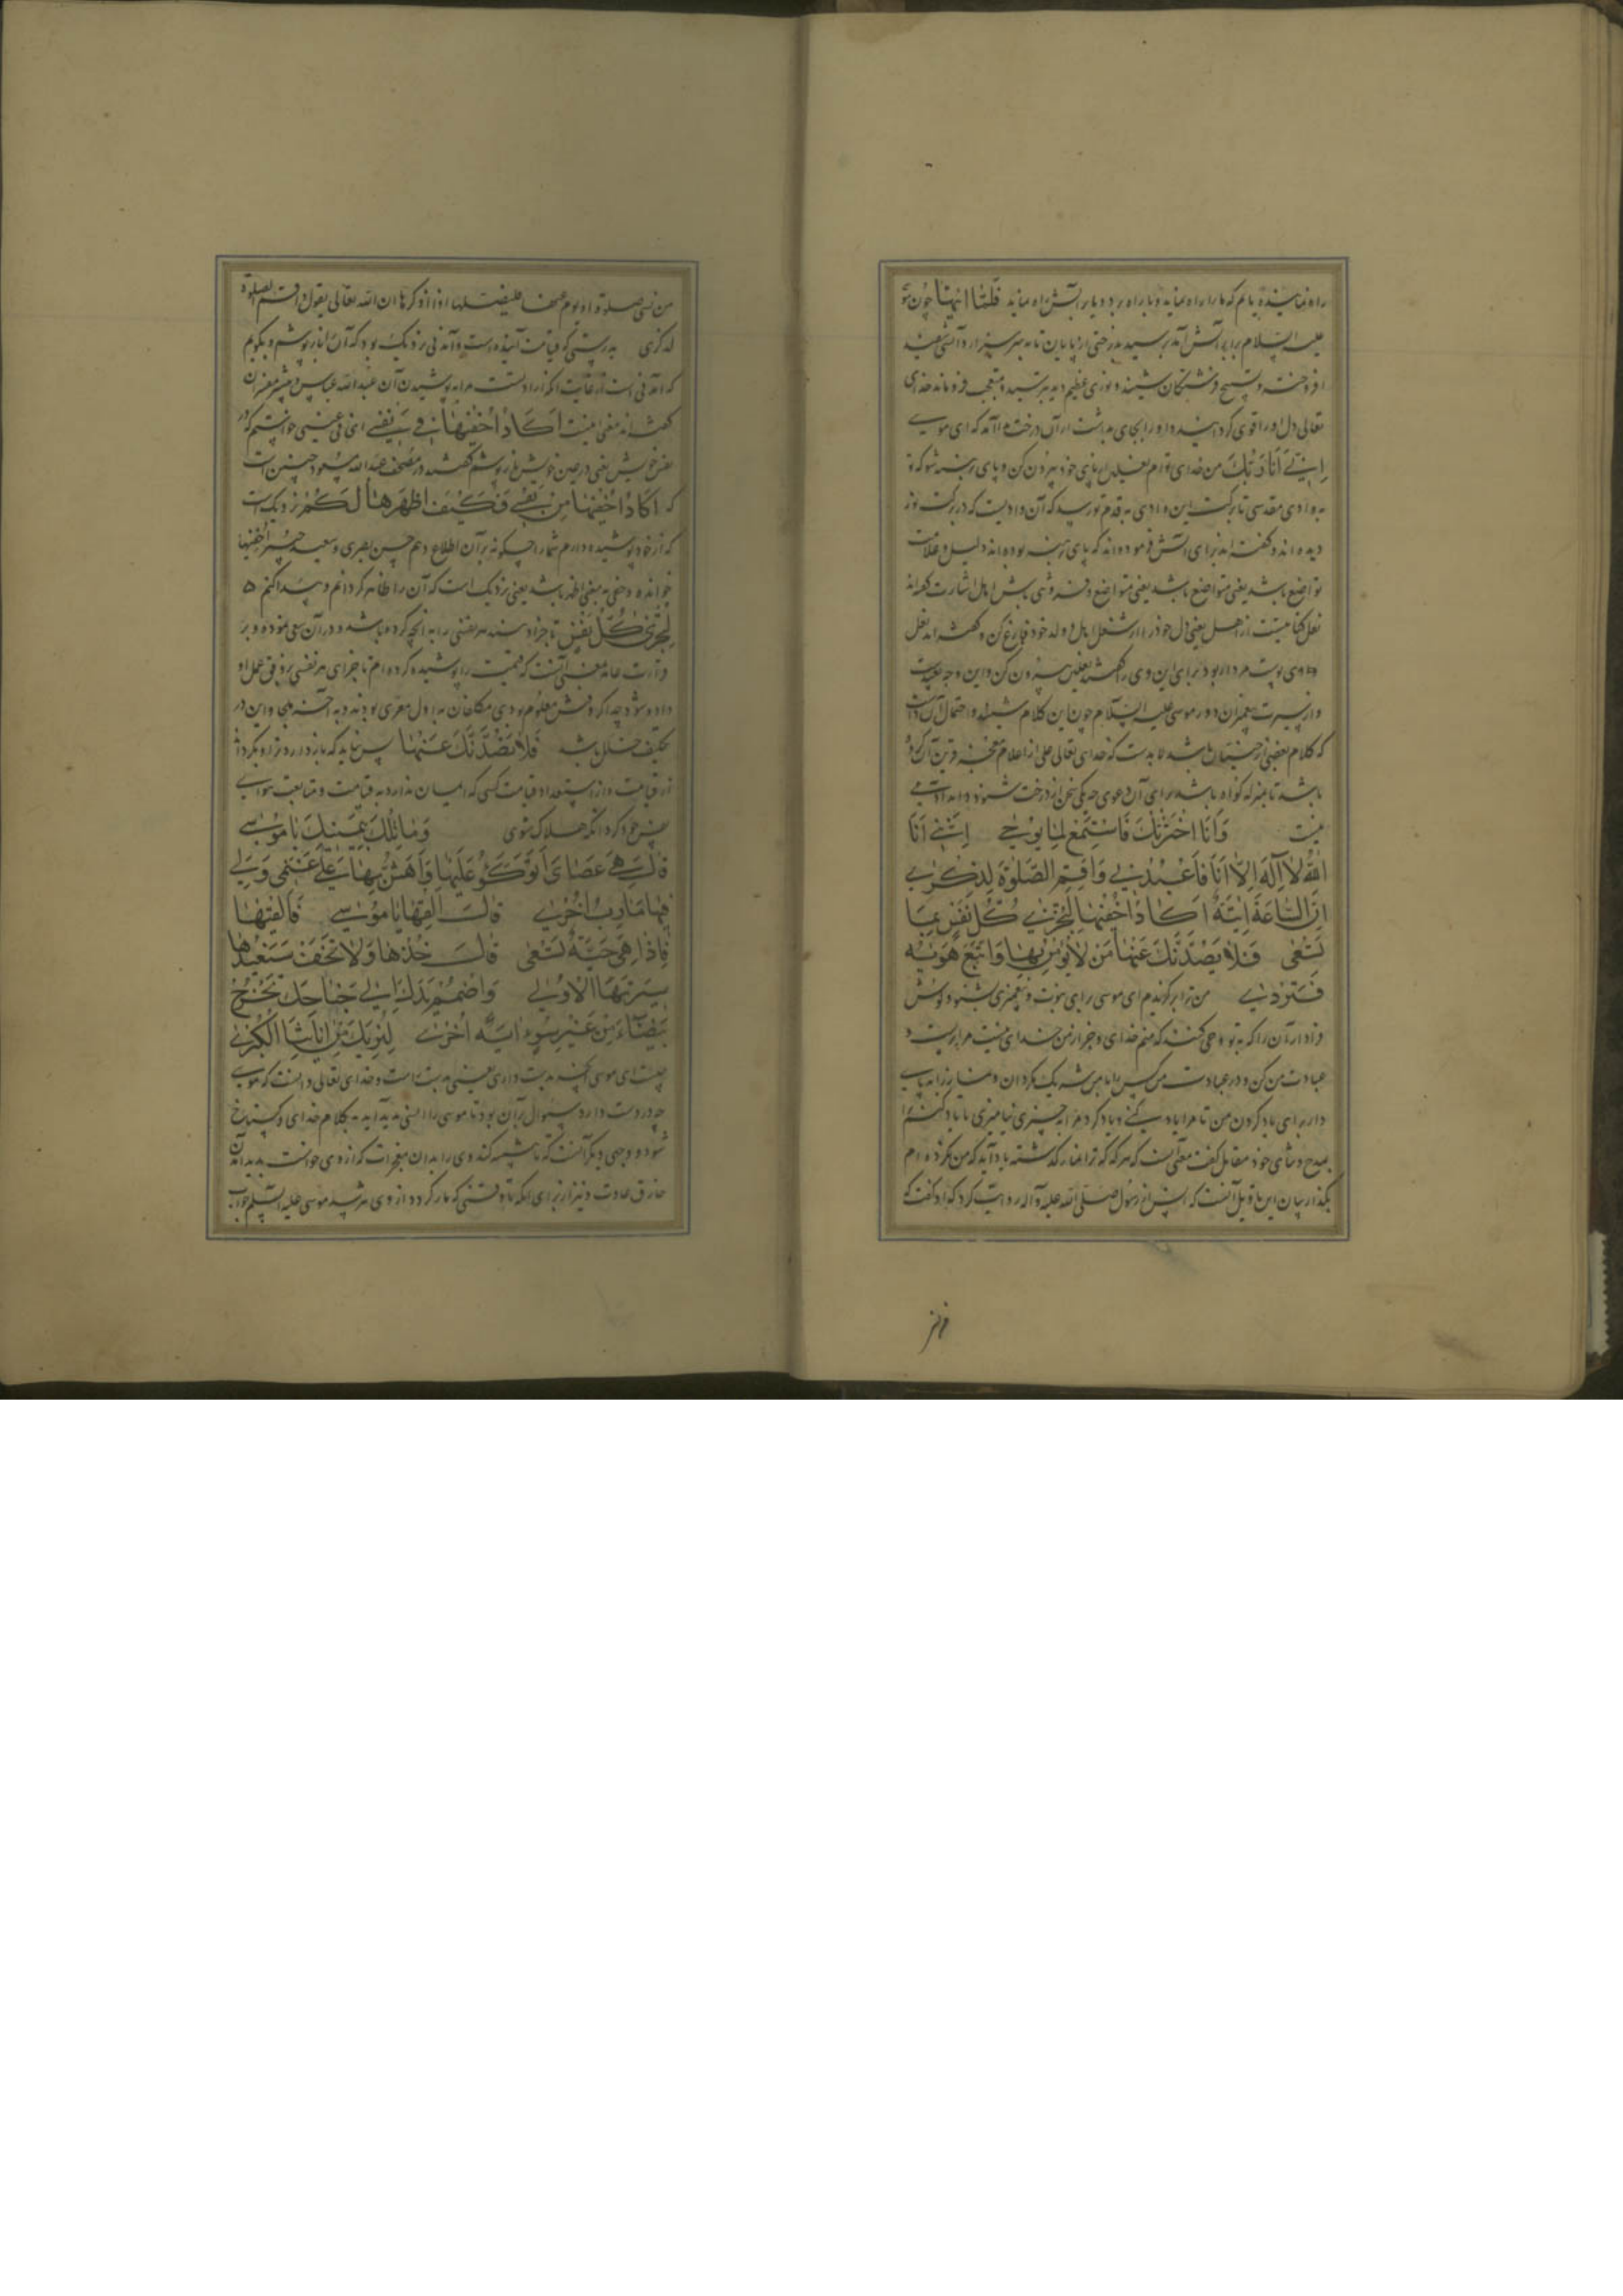 راه نماینده یابم که ما را راه نماید و با راه برد و یا بر آتش راه نماید فلما اتیها چون مو
علیه السلام برابر آتش آمد برسید بدرختی از پایان تا به سر سبز در آتشی سفید
افروخته و تسبیح فرشتگان شنید و نوری عظیم دید بترسید و متعجب فروماند خدای
تعالی دل او را قوی گردانید و او را بجای بداشت از آن درخت ندا آمد که ای موسی
اِنِّی اَنَا رَبُّکَ من خدای توام نعلین از پای خود بیرون کن و پای برهنه شو که تو
به وادی مقدسی تا برکت این وادی به قدم تو رسد که آن وادیست که در برکت نور
دیده اند و گفته اند برای آتش فرموده اند که پای برهنه بوده اند دلیل و علامت
تواضع باشد یعنی متواضع باشد یعنی متواضع و فروتنی باش اهل اشارت گفته اند
نعل کنایتست از اهل یعنی دل خود را از شغل اهل و ولد خود فارغ کن و گفته اند نعل
وی پوست مردار بود برای این وی را گفتند نعلین بیرون کن و این وجه بعیدست
و از سیرت پیغمبران دور موسی علیه السلام چون این کلام شنید و احتمال آن داشت
که کلام بعضی از جنیان باشد لا بدست که خدای تعالی علمی از اعلام معجز قرین آن کرده
باشد تا بمنزله گواه باشد برای آن دعوی چه یکی سخن از درخت شنود داند آدمی
نیست وَاَنَا اخْتَرْتُکَ فَاسْتَمِعْ لِمَا یُوحٰی اِنَّنِی اَنَا
اللّٰهُ لَا اِلٰهَ اِلَّا اَنَا فَاعْبُدْنِی وَاَقِمِ الصَّلٰوةَ لِذِکْرِی
اِنَّ السَّاعَةَ اٰتِیَةٌ اَکَادُ اُخْفِیهَا لِتُجْزٰی کُلُّ نَفْسٍ بِمَا
تَسْعٰی فَلَا یَصُدَّنَّکَ عَنْهَا مَنْ لَا یُؤْمِنُ بِهَا وَاتَّبَعَ هَوٰیهُ
فَتَرْدٰی من ترا برگزیدم ای موسی برای نبوت و پیغمبری بشنو و گوش
فرا دار آن را که به تو وحی کنند که منم خدای و جز از من خدای نیست مرا پرست و
عبادت من کن و در عبادت من کس را با من شریک مگردان و نماز را به پای
دار برای یاد کردن من تا مرا یاد کنی و یاد کرد مرا به چیزی نیامیزی تا یاد کنم ترا
بمدح و ثنای خود مقاتل گفت معنی آنست که هر گه که ترا نماز گذشته یاد آید که من نکرده ام
بگذار بیان این تاویل آنست که انس از رسول صلی الله علیه و آله روایت کرد که او گفت که
من نسی صلوة او نوم عنها فلیصلها اذا ذکرها ان الله تعالی یقول و اقم الصلوة
لذکری به درستی که قیامت آینده است و آمدنی نزدیک بود که آن را باز پوشم و نگویم
که آمدنی است از غایت آنکه ارادتست مرا به پوشیدن آن عبد الله عباس و بیشتر مفسران
گفته اند معنی اینست اَکَادُ اُخْفِیهَا مِنْ نَفْسِی ای فی غیبی خواستم که در
نفس خویش یعنی در عین خویش باز پوشم گفتند در مصحف عبد الله مسعود چنین است
که اَکَادُ اُخْفِیهَا مِنْ نَفْسِی فَکَیْفَ اُظْهِرُهَا لَکُمْ نزدیکست
که از خود پوشیده دارم شما را چگونه بر آن اطلاع دهم حسن بصری و سعید جبیر اَخفیها
خوانده و خفی به معنی اظهر باشد یعنی نزدیک است که آن را ظاهر گردانم و پیدا کنم ه
لِتُجْزٰی کُلُّ نَفْسٍ تا جزا دهند هر نفسی را به آنچه کرده باشد و در آن سعی نموده و بر
قراءت عامه معنی آنست که قیامت را پوشیده کرده ام تا جزای هر نفسی بر وفق عمل او
داده شود چه اگر وقتش معلوم بودی مکلفان به اول مغری بودند و به آخر ملجا و این در
تکلیف خلل باشد فَلَا یَصُدَّنَّکَ عَنْهَا پس نباید که باز دارد ترا و بگرداند
از قیامت و از استعداد قیامت کسی که ایمان ندارد به قیامت و متابعت هوای
نفس خود کرد آنگه هلاک شوی وَمَا تِلْکَ بِیَمِینِکَ یَا مُوسٰی
قَالَ هِیَ عَصَایَ اَتَوَکَّؤُ عَلَیْهَا وَاَهُشُّ بِهَا عَلٰی غَنَمِی وَلِیَ
فِیهَا مَاٰرِبُ اُخْرٰی قَالَ اَلْقِهَا یَا مُوسٰی فَاَلْقٰیهَا
فَاِذَا هِیَ حَیَّةٌ تَسْعٰی قَالَ خُذْهَا وَلَا تَخَفْ سَنُعِیدُهَا
سِیرَتَهَا الْاُولٰی وَاضْمُمْ یَدَکَ اِلٰی جَنَاحِکَ تَخْرُجْ
بَیْضَاءَ مِنْ غَیْرِ سُوءٍ اٰیَةً اُخْرٰی لِنُرِیَکَ مِنْ اٰیَاتِنَا الْکُبْرٰی
چیست ای موسی آنچه به دست داری یعنی به دست راست و خدای تعالی دانست که موسی
چه در دست دارد سؤال بر آن بود تا موسی را انسی پدید آید به کلام خدای و گستاخ
شود و وجهی دیگر آنست که تا تنبیه کند وی را بدان معجزات که از وی خواست پدید آمدن
خارق عادت و نیز از برای آنکه تا وقتی که مار گردد از وی نترسد موسی علیه السلم جواب
فر نیز